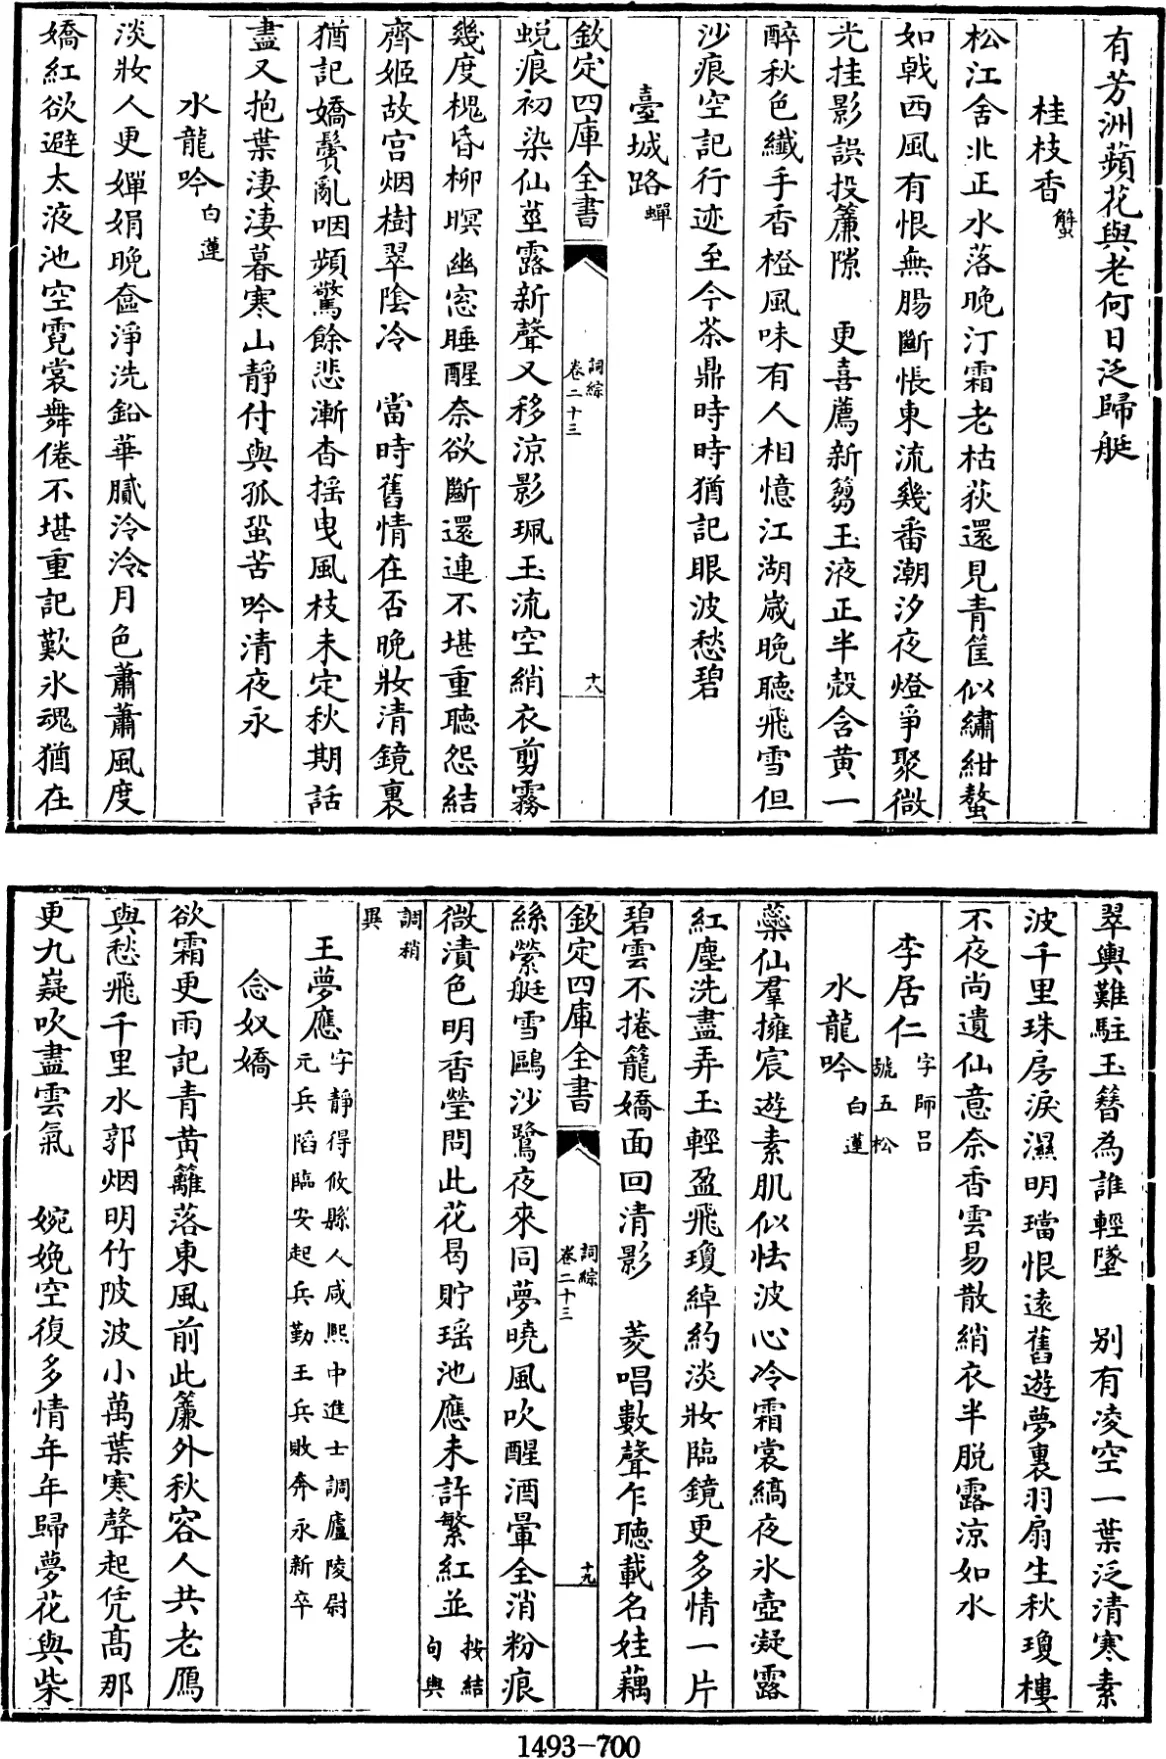 有芳洲蘋花與老何日泛歸艇
桂枝香蟹
松江舍北正水落晚汀霜老枯荻還見青筐似繡紺螯
如戟西風有恨無腸斷悵東流幾番潮汐夜燈爭聚微
光挂影誤投簾隙　更喜薦新篘玉液正半殻含黄一
醉秋色纖手香橙風味有人相憶江湖嵗晚聽飛雪但
沙痕空記行迹至今茶鼎時時猶記眼波愁碧
臺城路蟬
欽定四庫全書
詞綜
卷二十三
十八
蜕痕初染仙莖露新聲又移涼影珮玉流空綃衣剪霧
幾度槐昏柳暝幽窓睡醒奈欲斷還連不堪重聽怨結
齊姬故宫烟樹翠陰冷　當時舊情在否晚妝清鏡裏
猶記嬌鬢亂咽頻驚餘悲漸杳揺曵風枝未定秋期話
盡又抱葉淒淒暮寒山靜付與孤蛩苦吟清夜永
水龍吟白蓮
淡妝人更嬋娟晚奩淨洗鉛華膩泠泠月色蕭蕭風度
嬌紅欲避太液池空霓裳舞倦不堪重記歎氷魂猶在
翠輿難駐玉簪為誰輕墜　别有凌空一葉泛清寒素
波千里珠房淚濕明璫恨遠舊遊夢裏羽扇生秋瓊樓
不夜尚遺仙意奈香雲易散綃衣半脱露涼如水
李居仁字師吕
號五松
水龍吟白蓮
蘂仙羣擁宸遊素肌似怯波心冷霜裳縞夜氷壺凝露
紅塵洗盡弄玉輕盈飛瓊綽約淡妝臨鏡更多情一片
碧雲不捲籠嬌面回清影　菱唱數聲乍聽載名娃藕
欽定四庫全書
詞綜
卷二十三
十九
絲縈艇雪鷗沙鷺夜來同夢曉風吹醒酒暈全消粉痕
微漬色明香瑩問此花曷貯瑶池應未許繁紅並按結
句與
調稍
異
王夢應字靜得攸縣人咸熙中進士調廬陵尉
元兵陷臨安起兵勤王兵敗奔永新卒
念奴嬌
欲霜更雨記青黄籬落東風前此簾外秋容人共老鴈
與愁飛千里水郭烟明竹陂波小萬葉寒聲起凭髙那
更九嶷吹盡雲氣　婉娩空復多情年年歸夢花與柴
1493-700